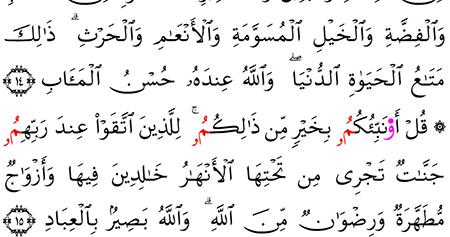 وَٱلْفِضَّةِ وَٱلْخَيْلِ ٱلْمُسَوَّمَةِ وَٱلْأَنْعَٰمِ وَٱلْحَرْثِ ۗ ذَٰلِكَ
مَتَٰعُ ٱلْحَيَوٰةِ ٱلدُّنْيَا ۖ وَٱللَّهُ عِندَهُۥ حُسْنُ ٱلْمَـَٔابِ ١٤
۞ قُلْ أَؤُنَبِّئُكُمُۥ بِخَيْرٍ مِّن ذَٰلِكُمُۥ ۚ لِلَّذِينَ ٱتَّقَوْا۟ عِندَ رَبِّهِمُۥ
جَنَّٰتٌ تَجْرِى مِن تَحْتِهَا ٱلْأَنْهَٰرُ خَٰلِدِينَ فِيهَا وَأَزْوَٰجٌ
مُّطَهَّرَةٌ وَرِضْوَٰنٌ مِّنَ ٱللَّهِ ۗ وَٱللَّهُ بَصِيرٌۢ بِٱلْعِبَادِ ١٥